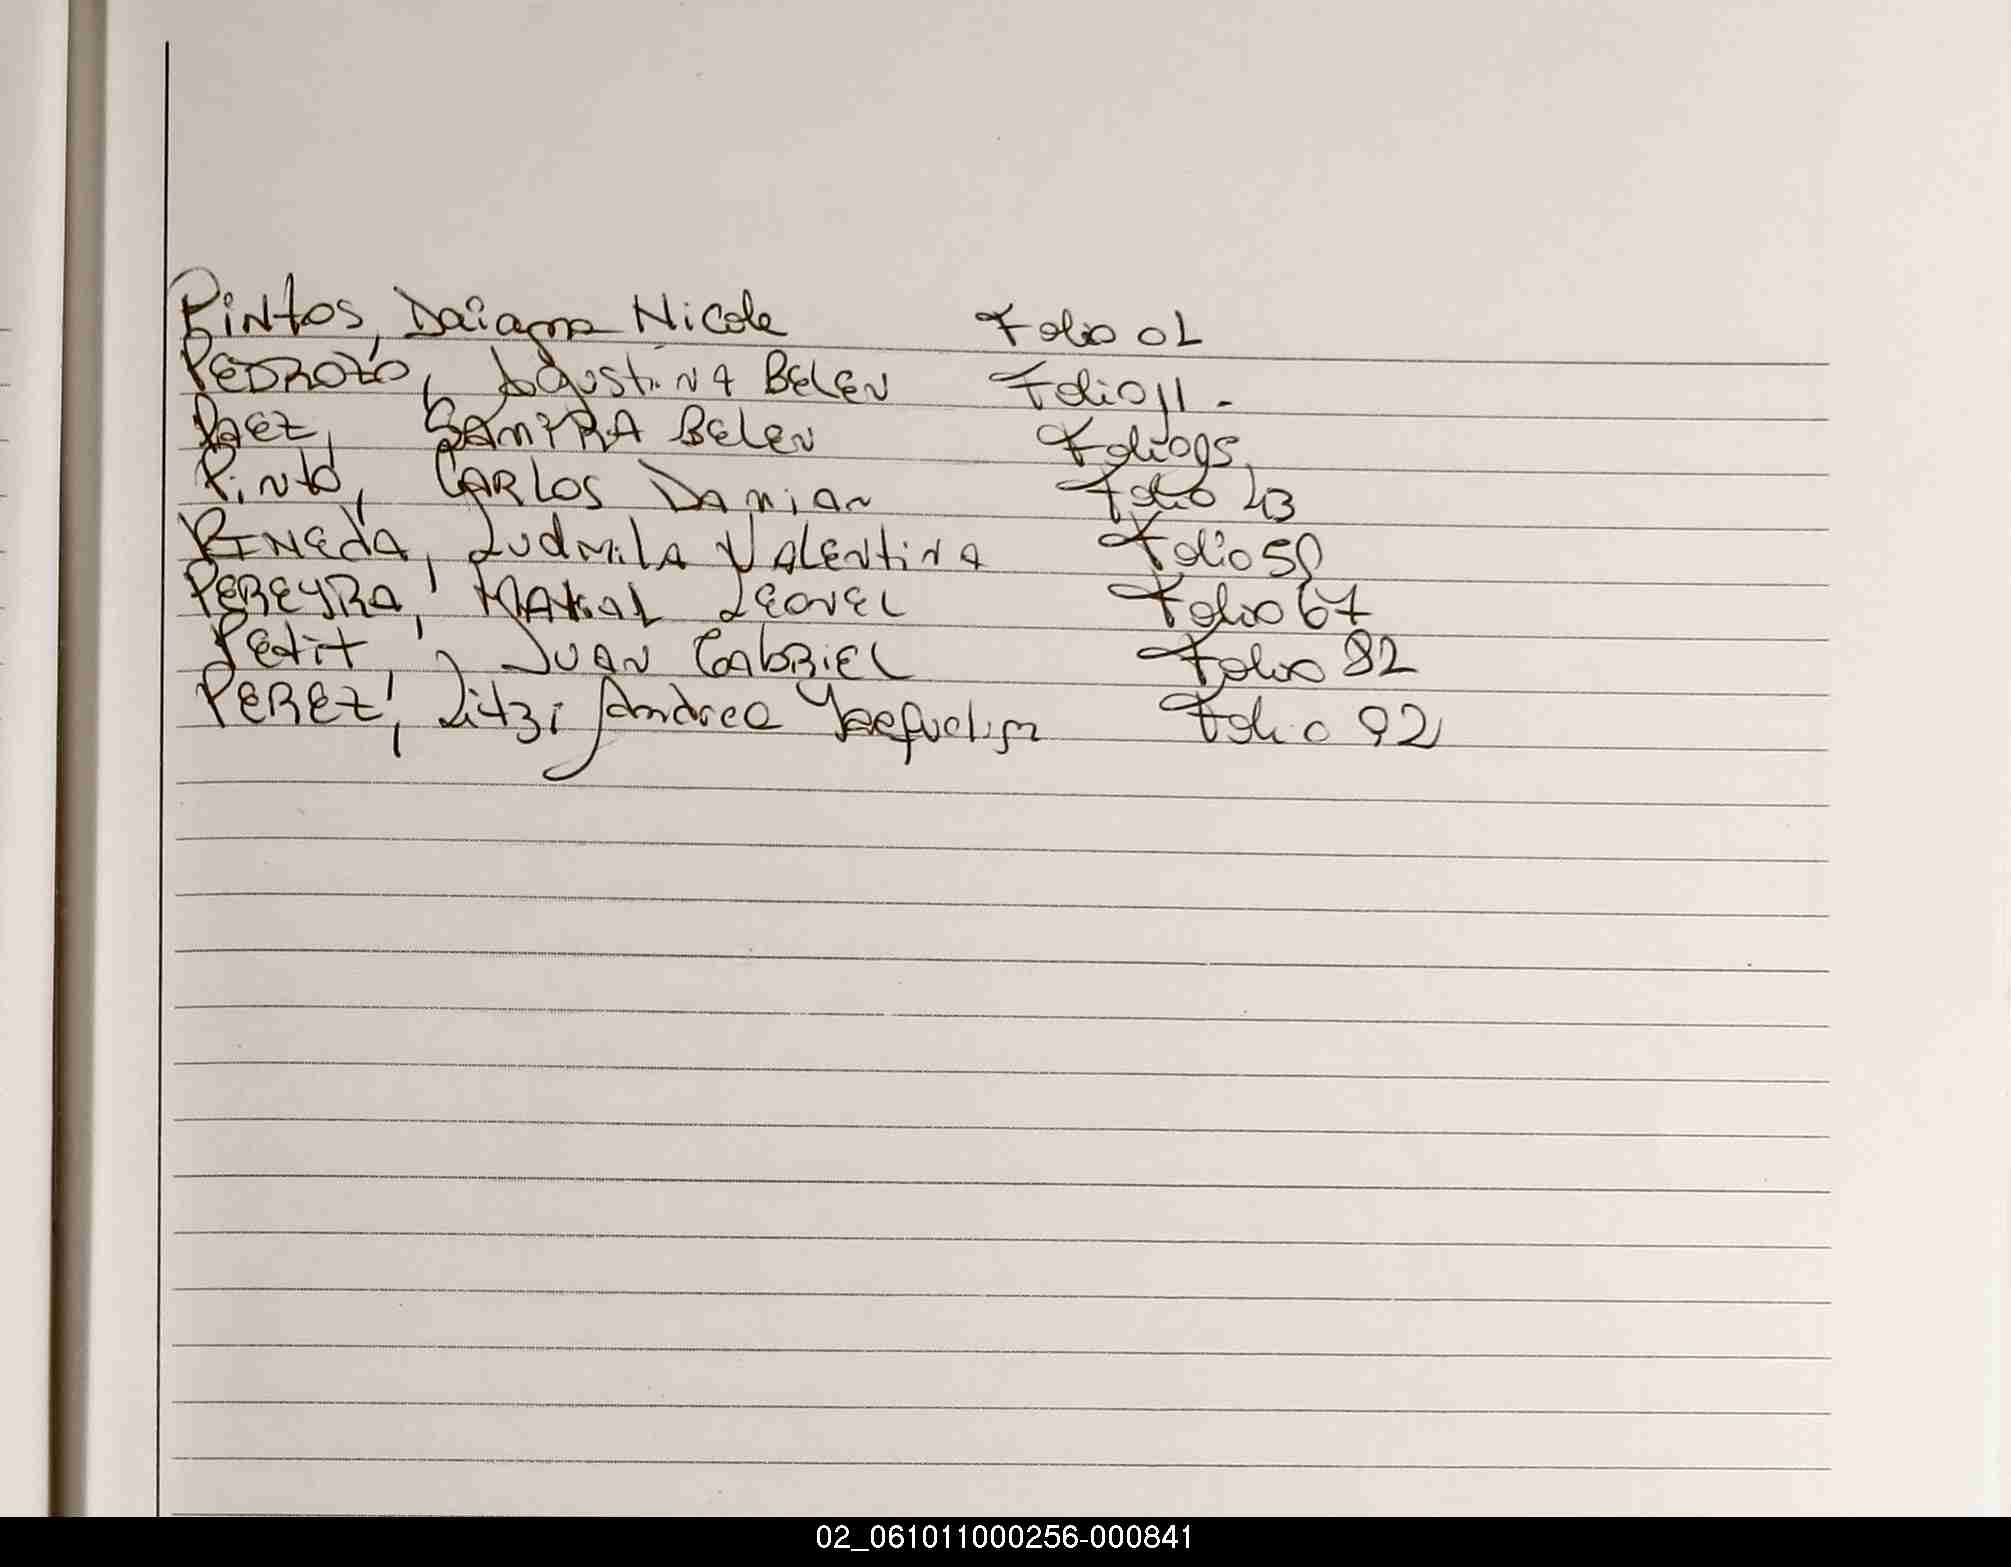 Pintos, Daiana Nicole Folio 01
PEDROZO, Agustina BELEN Folio 11.
Paez, SAMIRA BELEN Folio 95
Pinto, CARLOS DAMIAN Folio 43
PINEDA, Ludmila VALENTINA Folio 50
PEREYRA, LEONEL Folio 67
Petit, JUAN GABRIEL Folio 82
PEREZ, Litzi Andrea Folio 92
02_061011000256-000841